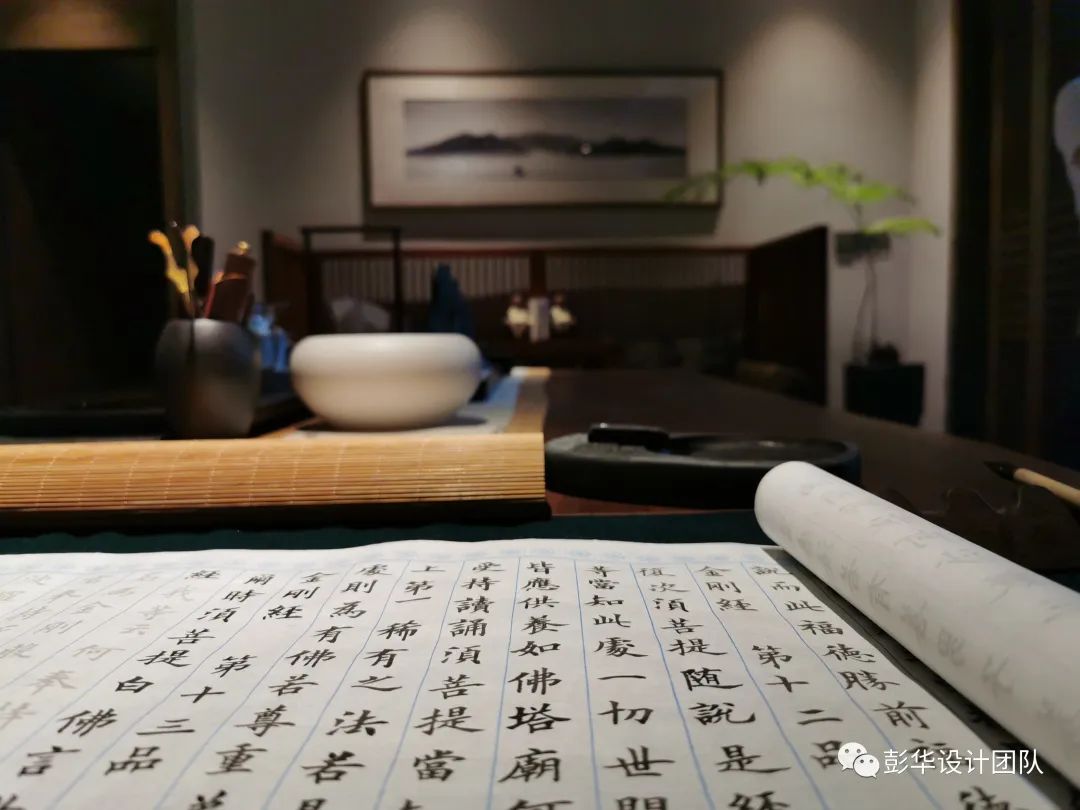 說而此福德勝前
金剛經 第十二品
復次須菩提隨說是經
等當知此處一切世間
皆應供養如佛塔廟何
受持讀誦須菩提當
上第一稀有之法若是
處則為有佛若尊重
金剛經 第十三品
爾時須菩提白佛言
經我等云何奉
彭华设计团队